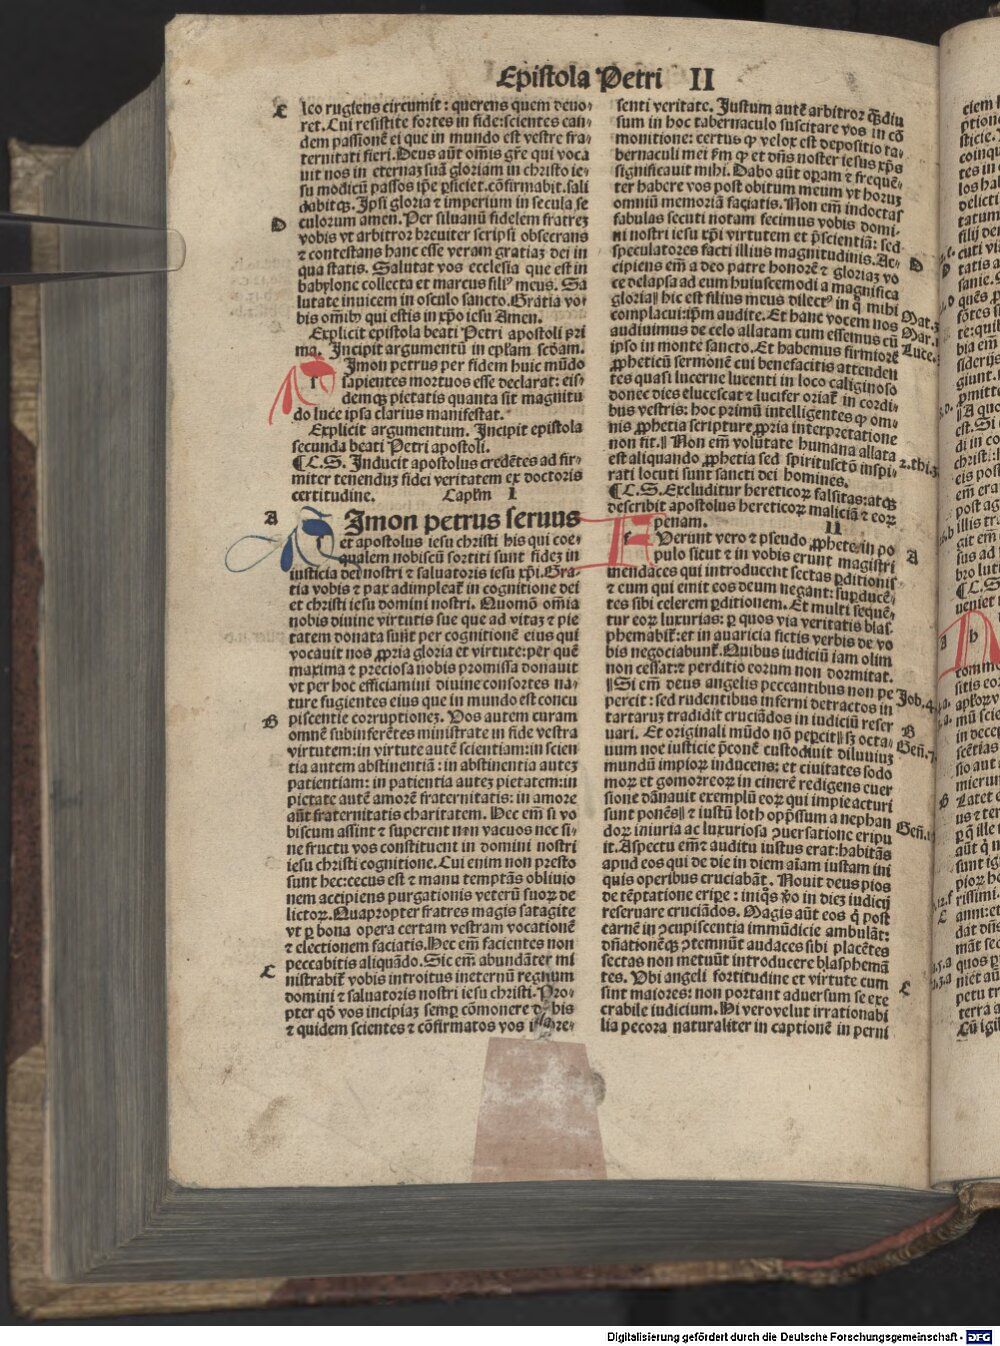 Epistola Petri II
C leo rugiens circumit: querens quem deuo-
ret. Cui resistite fortes in fide: scientes ean-
dem passionē ei que in mundo est vestre fra-
ternitati fieri. Deus aūt om̄is gr̄e qui voca
uit nos in eternaꝫ suā gloriam in christo ie-
su modicū passos ip̄e ꝑficiet. cōfirmabit. soli
dabitqꝫ. Ipsi gloria ⁊ imperium in secula se
D culorum amen. Per siluanū fidelem fratreꝫ
vobis vt arbitror breuiter scripsi obsecrans
⁊ contestans hanc esse veram gratiaꝫ dei in
qua statis. Salutat vos ecclesia que est in
babylone collecta et marcus filiꝰ meus. Sa
lutate inuicem in osculo sancto. Gratia vo-
bis omībꝰ qui estis in xp̄o iesu Amen.
Explicit epistola beati Petri apostoli pri
ma. Incipit argumentū in ep̄lam scḋam.
s Imon petrus per fidem huic mūdo
sapientes mortuos esse declarat: eis-
demqꝫ pietatis quanta sit magnitu
do luce ipsa clarius manifestat.
Explicit argumentum. Incipit epistola
secunda beati Petri apostoli.
¶ C.S. Inducit apostolus credētes ad fir-
miter tenenduꝫ fidei veritatem ex doctoris
certitudine. Caplm I
A s Imon petrus seruus
et apostolus iesu christi his qui coe-
qualem nobiscū sortiti sunt fideꝫ in
iusticia dei nostri ⁊ saluatoris iesu xp̄i. Gra-
tia vobis ⁊ pax adimpleat̄ in cognitione dei
et christi iesu domini nostri. Quomō om̄ia
nobis diuine virtutis sue que ad vitaꝫ ⁊ pie
tatem donata sunt per cognitionē eius qui
vocauit nos ꝓpria gloria et virtute: per quē
maxima ⁊ preciosa nobis promissa donauit
vt per hoc efficiamini diuine consortes na-
ture fugientes eius que in mundo est concu
B piscentie corruptioneꝫ. Vos autem curam
omnē subinferētes ministrate in fide vestra
virtutem: in virtute autē scientiam: in scien
tia autem abstinentiā: in abstinentia auteꝫ
patientiam: in patientia auteꝫ pietatem: in
pietate autē amorē fraternitatis: in amore
aūt fraternitatis charitatem. Hec em̄ si vo
biscum assint ⁊ superent non vacuos nec si-
ne fructu vos constituent in domini nostri
iesu christi cognitione. Cui enim non presto
sunt hec: cecus est ⁊ manu temptās obliuio
nem accipiens purgationis veterū suoꝝ de
lictoꝝ. Quapropter fratres magis satagite
vt ꝑ bona opera certam vestram vocationē
⁊ electionem faciatis. Hec em̄ facientes non
peccabitis aliquādo. Sic em̄ abundāter mi
C nistrabit̄ vobis introitus in eternū regnum
domini ⁊ saluatoris nostri iesu christi. Pro-
pter qḋ vos incipiaꝫ semꝑ cōmonere de his
⁊ quidem scientes ⁊ cōfirmatos vos in pre-
senti veritate. Iustum autē arbitror qͣ̄diu
sum in hoc tabernaculo suscitare vos in cō
monitione: certus ꝙ velox est depositio ta-
bernaculi mei ẜm ꝙ et dn̄s noster iesus xp̄s
significauit mihi. Dabo aūt oꝑam ⁊ frequē-
ter habere vos post obitum meum vt horuꝫ
omniū memoriā faciatis. Non em̄ indoctas
fabulas secuti notam fecimus vobis domi-
ni nostri iesu xp̄i virtutem et p̄scientiā: sed
speculatores facti illius magnitudinis. Ac- D
cipiens em̄ a deo patre honorē ⁊ gloriaꝫ vo
ce delapsa ad eum huiuscemodi a magnifica
gloria‖ hic est filius meus dilectꝰ in quo mihi Mat.3.
complacui: ip̄m audite. Et hanc vocem nos Mar.1
audiuimus de celo allatam cum essemus cū Luce.
ipso in monte sancto. Et habemus firmiorē
ꝓpheticū sermonē cui benefacitis attenden
tes quasi lucerne lucenti in loco caliginoso
donec dies elucescat ⁊ lucifer oriat̄ in cordi-
bus vestris: hoc primū intelligentes ꝙ om-
nis ꝓphetia scripture ꝓpria interpretatione
non fit.‖ Non em̄ volūtate humana allata 2.thi.3.
est aliquando ꝓphetia sed spiritusctō inspi-
rati locuti sunt sancti dei homines.
¶ C.S. Excluditur hereticoꝝ falsitas: atqꝫ
describit apostolus hereticoꝝ maliciā ⁊ eoꝝ
penam. II
f Uerunt vero ⁊ pseudo ꝓphete in po A
pulo sicut ⁊ in vobis erunt magistri
mendaces qui introducent sectas ꝑditionis
⁊ eum qui emit eos deum negant: suꝑducē-
tes sibi celerem ꝑditionem. Et multi sequē-
tur eoꝝ luxurias: ꝑ quos via veritatis blas-
phemabit̄: et in auaricia fictis verbis de vo
bis negociabunt̄. Quibus iudiciū iam olim
non cessat: ⁊ perditio eorum non dormitat.
‖Si em̄ deus angelis peccantibus non pe Job.4.
percit: sed rudentibus inferni detractos in
tartaruꝫ tradidit cruciādos in iudiciū reser B
uari. Et originali mūdo nō peꝑcit‖ sꝫ octa- Gen̄.7.
uum noe iusticie p̄conē custodiuit diluuiuꝫ
mundū impioꝝ inducens: et ciuitates sodo
moꝝ et gomorreoꝝ in cinerē redigens euer
sione dānauit exemplū eoꝝ qui impie acturi
sunt ponēs‖ ⁊ iustū loth opp̄ssum a nephan Gen̄.
doꝝ iniuria ac luxuriosa ↄuersatione eripu
it. Aspectu em̄ ⁊ auditu iustus erat: habitās
apud eos qui de die in diem aīam iustam ini
quis operibus cruciabāt. Nouit deus pios
de tēptatione eriꝑe: iniqͦs v̊o in dieꝫ iudicij
reseruare cruciādos. Magis aūt eos q̇ post
carnē in ↄcupiscentia immūdicie ambulāt:
dn̄ationēqꝫ ↄtemnūt audaces sibi placētes
sectas non metuūt introducere blasphemā
tes. Vbi angeli fortitudine et virtute cum
sint maiores: non portant aduersum se exe C
crabile iudicium. Hi vero velut irrationabi
lia pecora naturaliter in captionē in perni
Digitalisierung gefördert durch die Deutsche Forschungsgemeinschaft - DFG